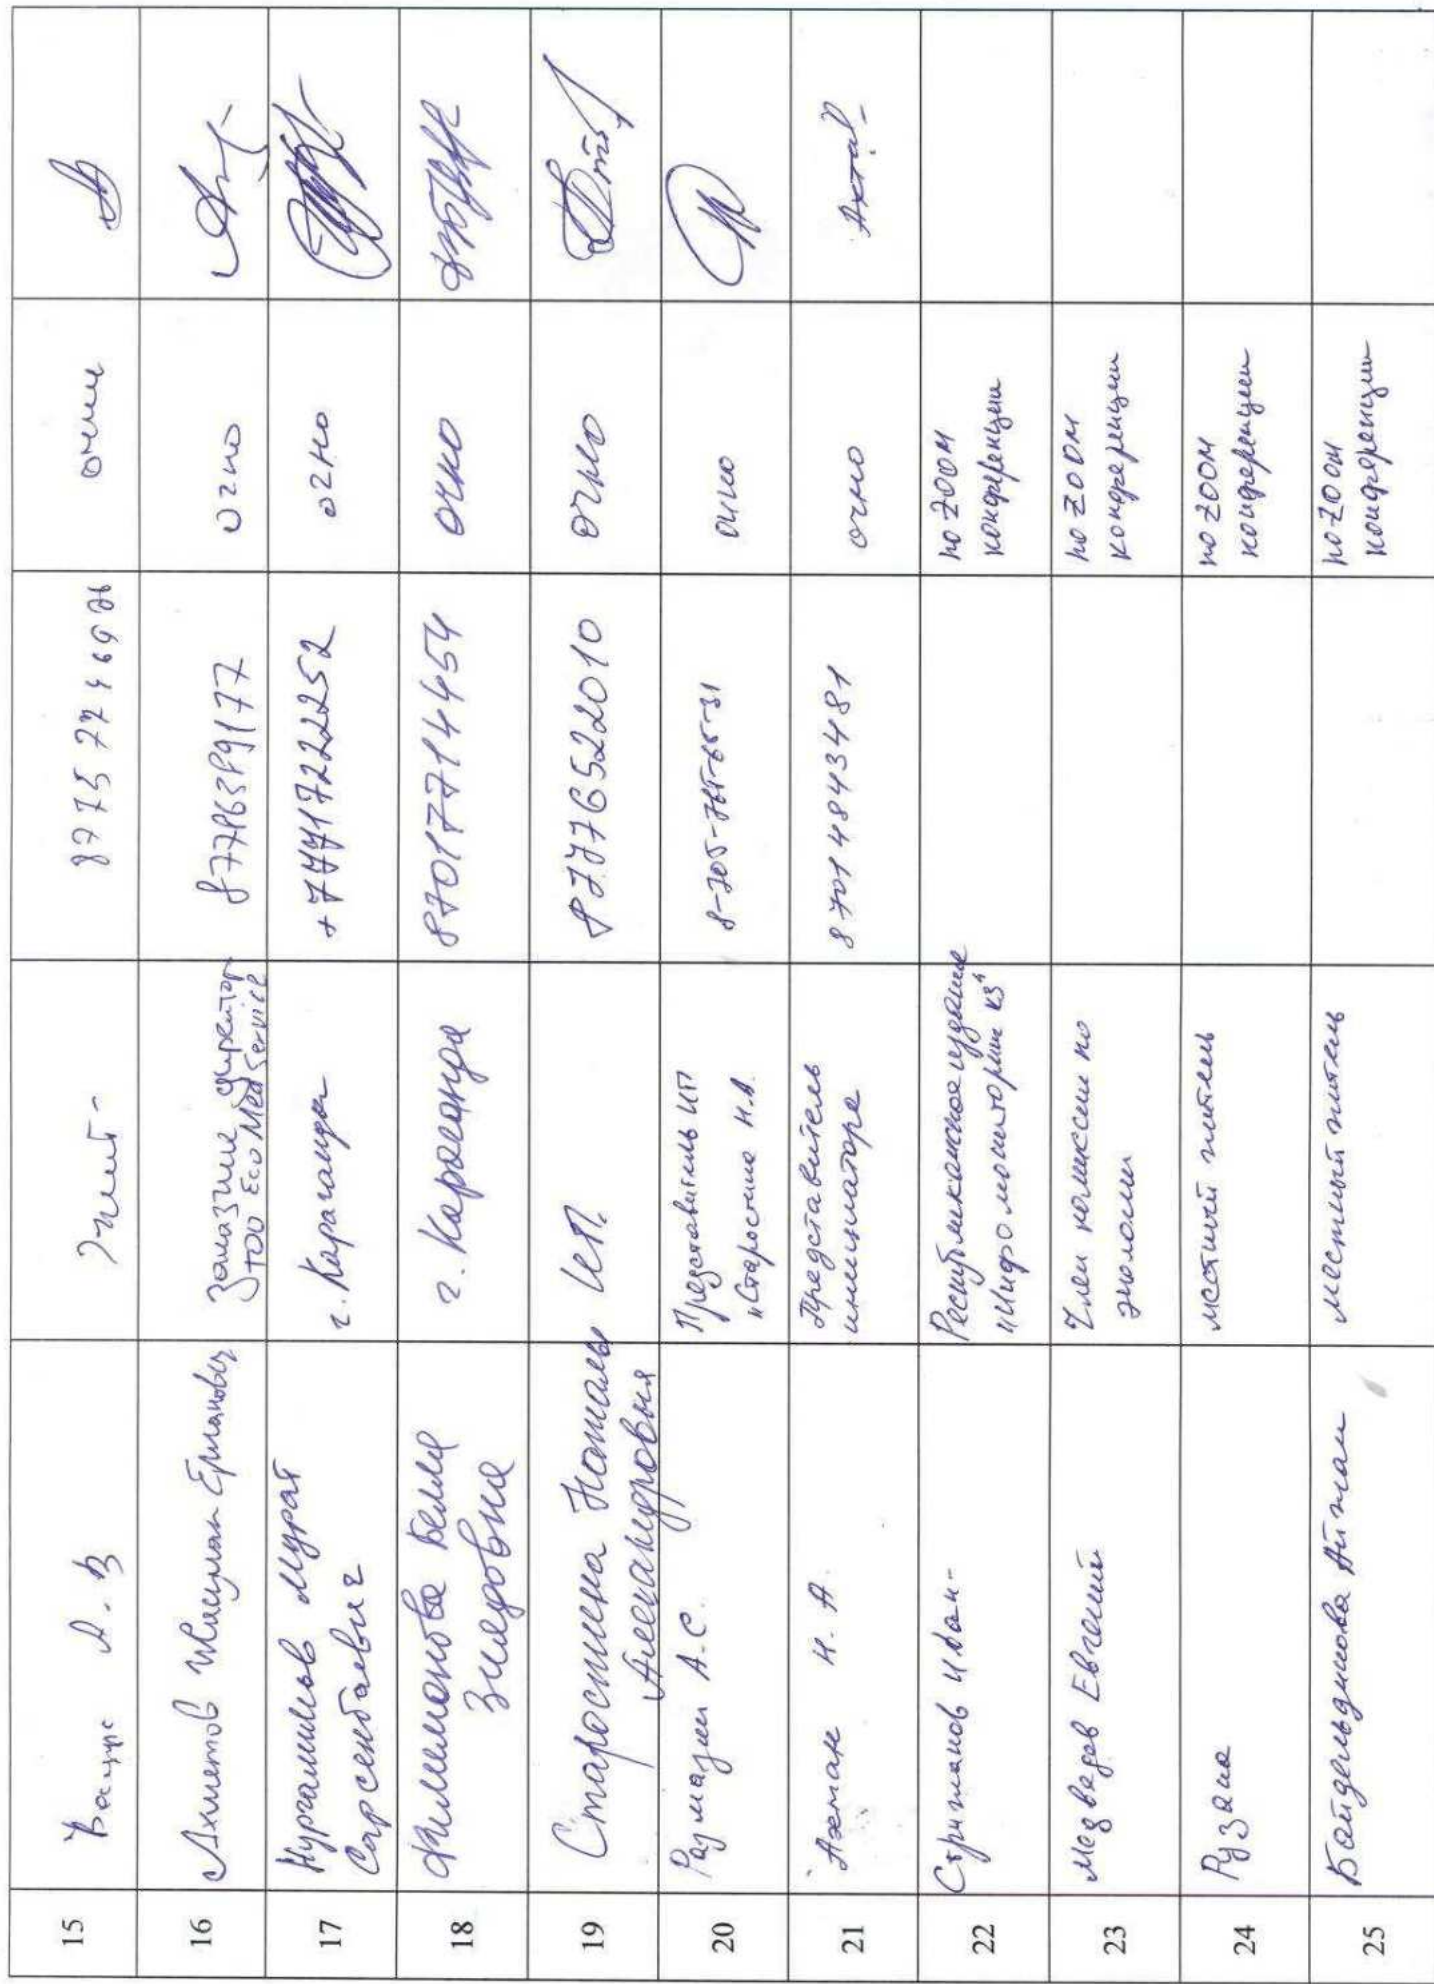 15 А. В житель 8775 очно
16 Ахметов Ермекович Заказчик директор ТОО Eco Med Service очно
17 Нургалиев Мурат
Сарсенбаевич г. Караганда +77717222252 очно
18 Филимонова Белла
Зиедовна г. Караганда 87017714454 очно
19 Старостина Наталья
Александровна ИП. 87776522010 очно
20 А.С. Представитель ИП
"Старостина Н.А. очно
21 Н. А. Представитель
инициатора 87014843481 очно
22 Иван Республиканское издание
"Инфо мониторинг KZ" по ZOOM
конференции
23 Медведев Евгений Член комиссии по
экологии по ZOOM
конференции
24 Рузана местный житель по ZOOM
конференции
25 Байдельдинова Айжан местный житель по ZOOM
конференции